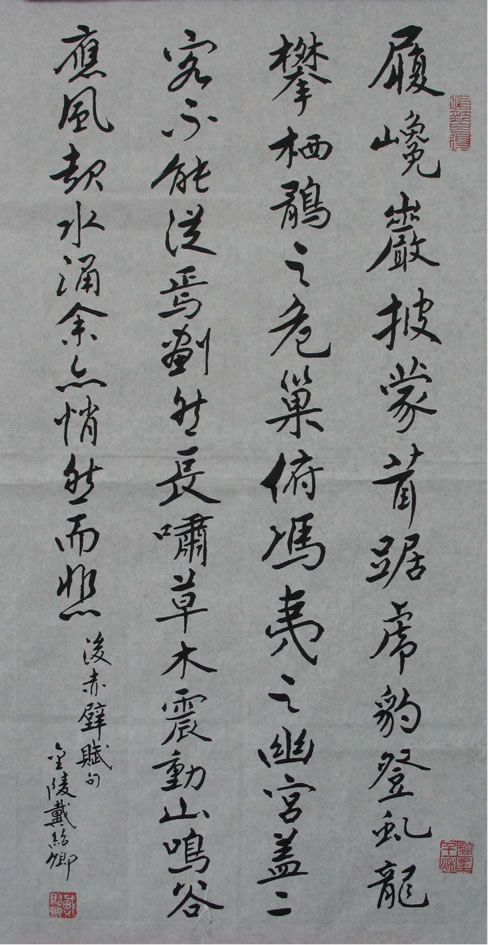 履巉巖披蒙茸踞虎豹登虬龍
攀栖鶻之危巢俯馮夷之幽宮蓋二
客不能從焉劃然長嘯草木震動山鳴谷
應風起水涌余亦悄然而悲
後赤壁賦句
金陵戴紹卿